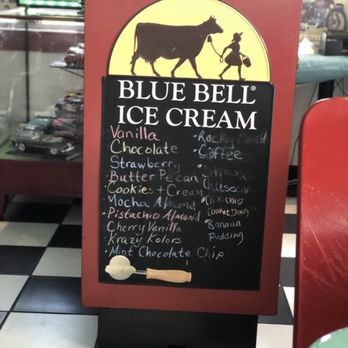 BLUE BELL®
ICE CREAM
Vanilla
Chocolate
Strawberry
Butter Pecan
Cookies + Cream
Mocha Almond
Pistachio Almond
Cherry Vanilla
Krazy Kolors
Mint Chocolate Chip
Rocky
Coffee
Cookie Dough
Banana
Pudding